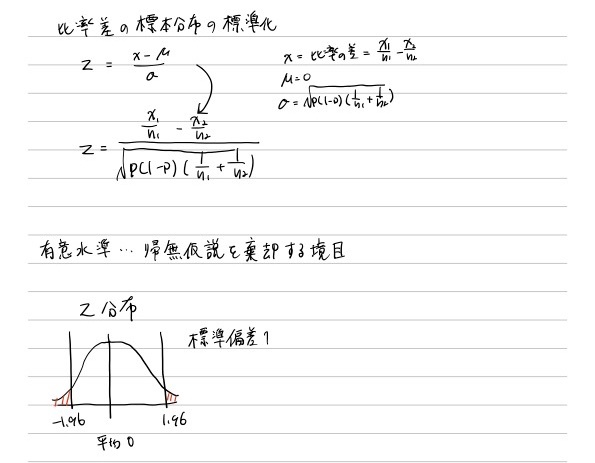 比率差の標本分布の標準化
z = (x - μ)/σ
x = 比率の差 = x₁/n₁ - x₂/n₂
μ = 0
σ = √(p(1-p)(1/n₁ + 1/n₂))
z = (x₁/n₁ - x₂/n₂)/√(p(1-p)(1/n₁ + 1/n₂))
有意水準… 帰無仮説を棄却する境目
z 分布
標準偏差1
-1.96
1.96
平均 0